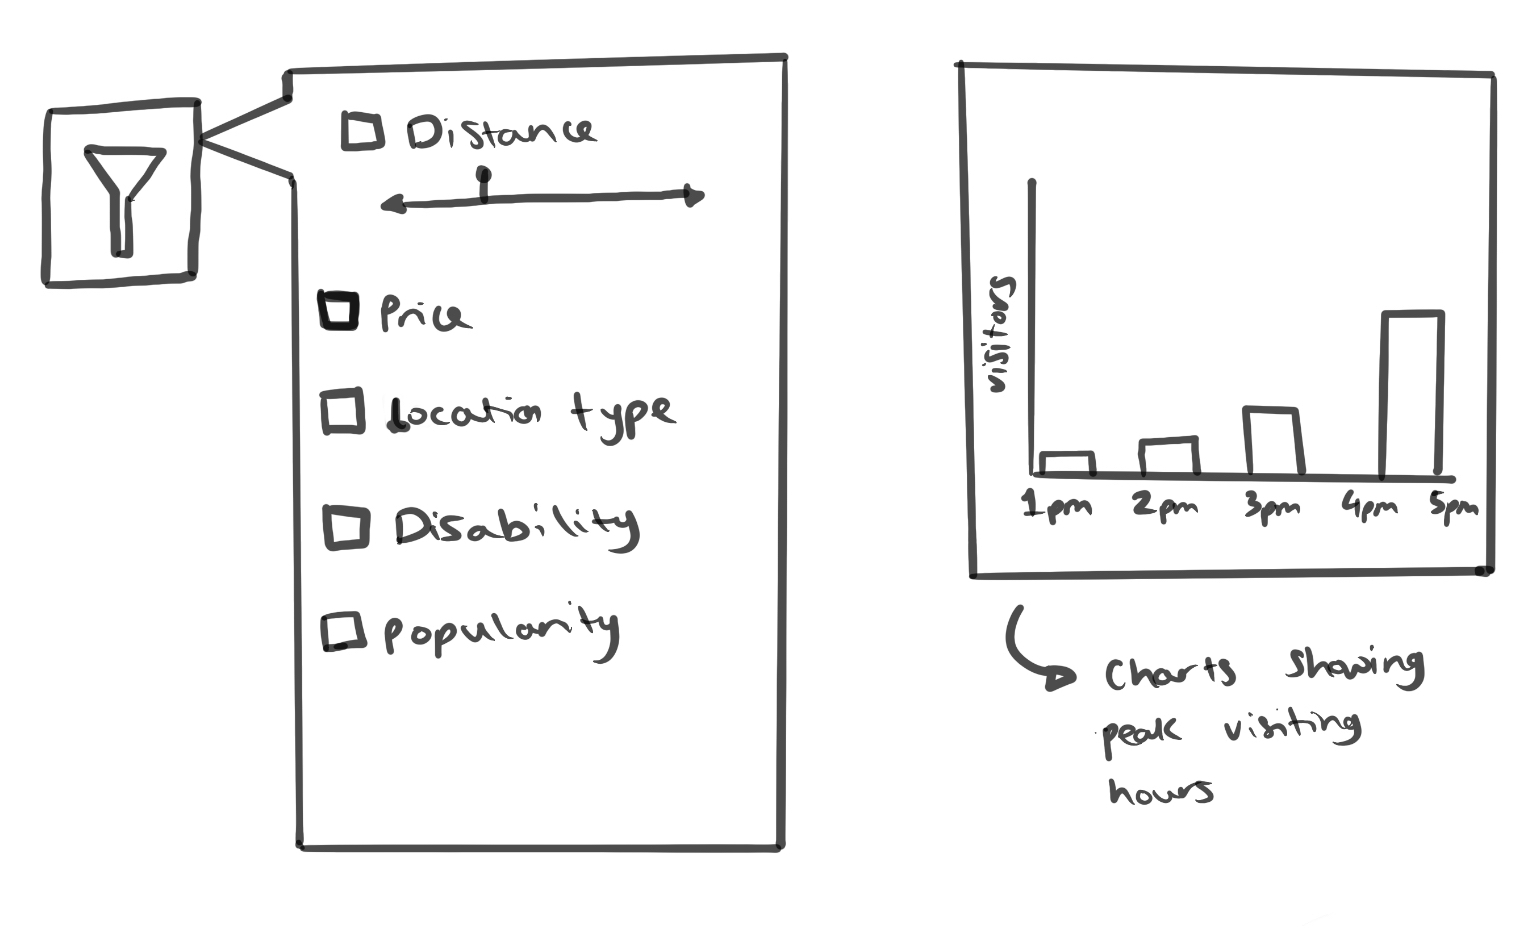 Distance
Price
Location type
Disability
popularity
visitors
1pm 2pm 3pm 4pm 5pm
Charts showing
peak visiting
hours